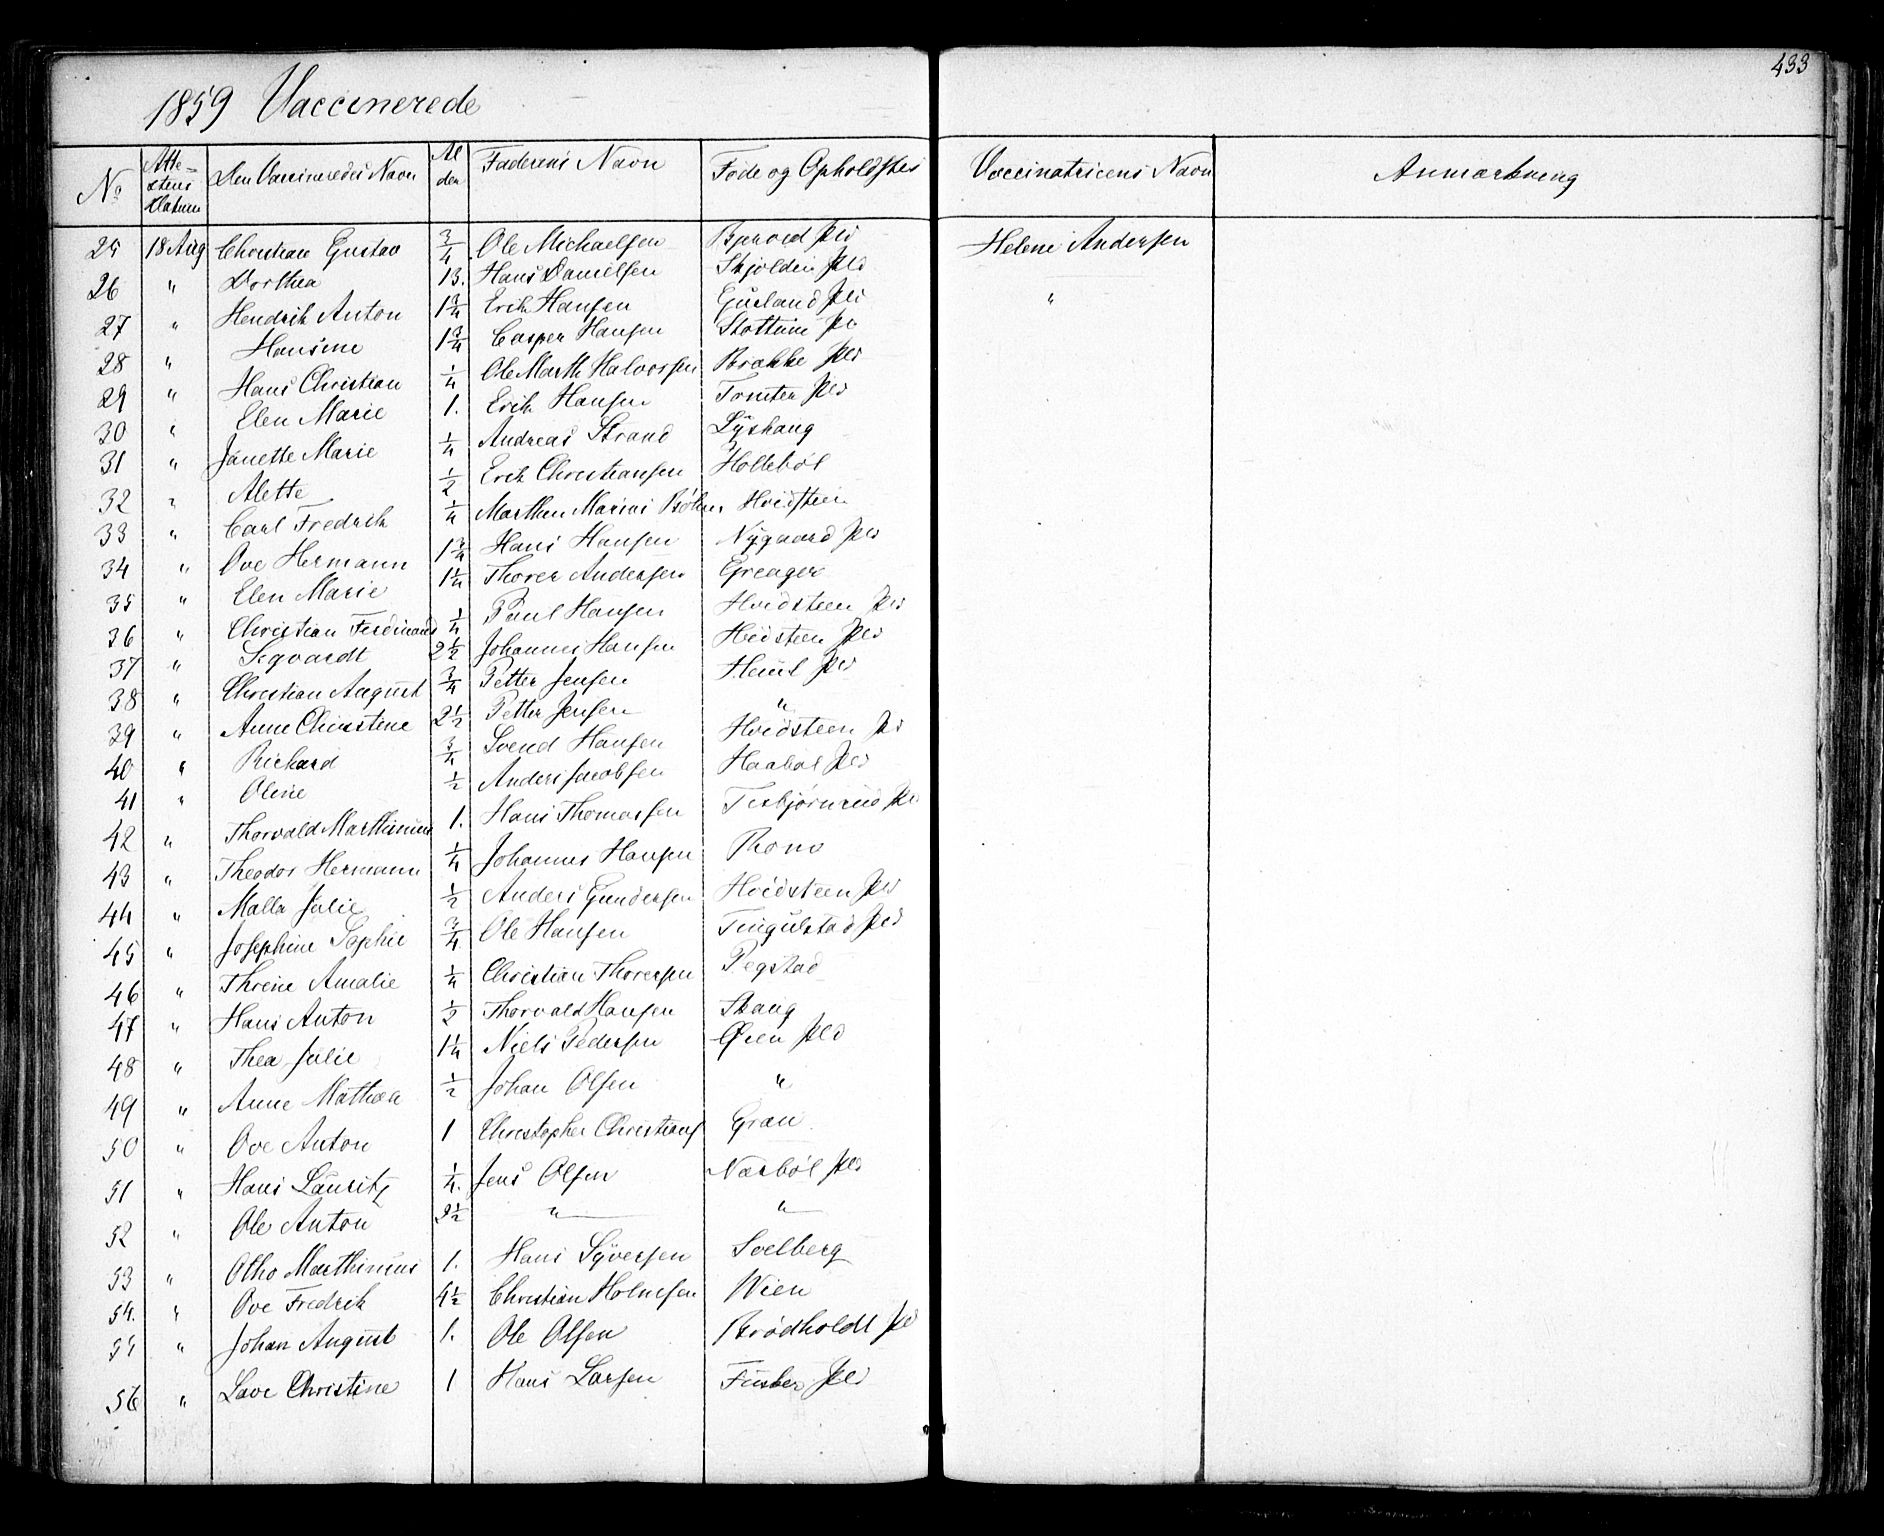 433
1859 Vaccinerede
No Attestens Datum Den Vaccineredes Navn Alder Faderens Navn Føde og Opholdsted Vaccinatricens Navn Anmærkning
25 18 Aug Christian Gustav 3/4 Ole Michaelsen Pld Helene Andersen
26 " Dorthea 13. Hans Danielsen Skjolden Pld
27 " Hendrik Anton 1 3/4 Erik Hansen Pld "
28 " Hansine 1 3/4 Casper Hansen Stottum
29 " Hans Christian 1/4 Ole Marth Halvorsen Brække Pld
30 " Elen Marie 1. Erik Hansen Tomter Pld
31 " Janette Marie 1/4 Andreas Strand Lyshaug
32 " Alette 1/2 Erik Christiansen Hollebøl
33 " Carl Fredrik 1/4 Marthin Marius Hvidsteen
34 " Ove Hermann 1 3/4 Hans Hansen Nygaard Pld
35 " Elen Marie 1 1/4 Thorer Andersen Greager
36 " Christian Ferdinand 1/4 Paul Hansen Hvidsteen Pld
37 " Segvardt 2 1/2 Johannes Hansen Hvidsteen Pld
38 " Christian August 3/4 Petter Jensen Pld
39 " Anne Christine 2 1/2 Petter Jensen "
40 " Richard 3/4 Svend Hansen Hvidsteen Pld
41 " Oline 1/2 Anders Jacobsen Haabøl Pld
42 " Thorvald Marthinius 1. Hans Thomassen Pld
43 " Theodor Hermann 1/4 Johannes Hansen
44 " Malla Julie 1/2 Anders Gundersen Hvidsteen Pld
45 " Josephine Sophie 3/4 Ole Hansen Tingulstad Pld
46 " Threine Amalie 1/4 Christian Thoresen Pegstad
47 " Hans Anton 1/2 Thorvald Hansen Skaug
48 " Thea Julie 1 1/4 Niels Pedersen Øien Pld
49 " Anne Mathea 1/2 Johan Olsen "
50 " Ove Anton 1 Christopher Christians Gran
51 " Hans Lauritz 1/4. Jens Olsen Nærbøl Pld
52 " Ole Anton 2 1/2 " "
53 " Otho Marthinius 1. Hans Syversen Solberg
54. " Ove Fredrik 4 1/2 Christian Holmesen Wien
55 " Johan August 1. Ole Olsen Brødholdt Pld
56 " Lave Christine 1 Hans Larsen Fusker Pld